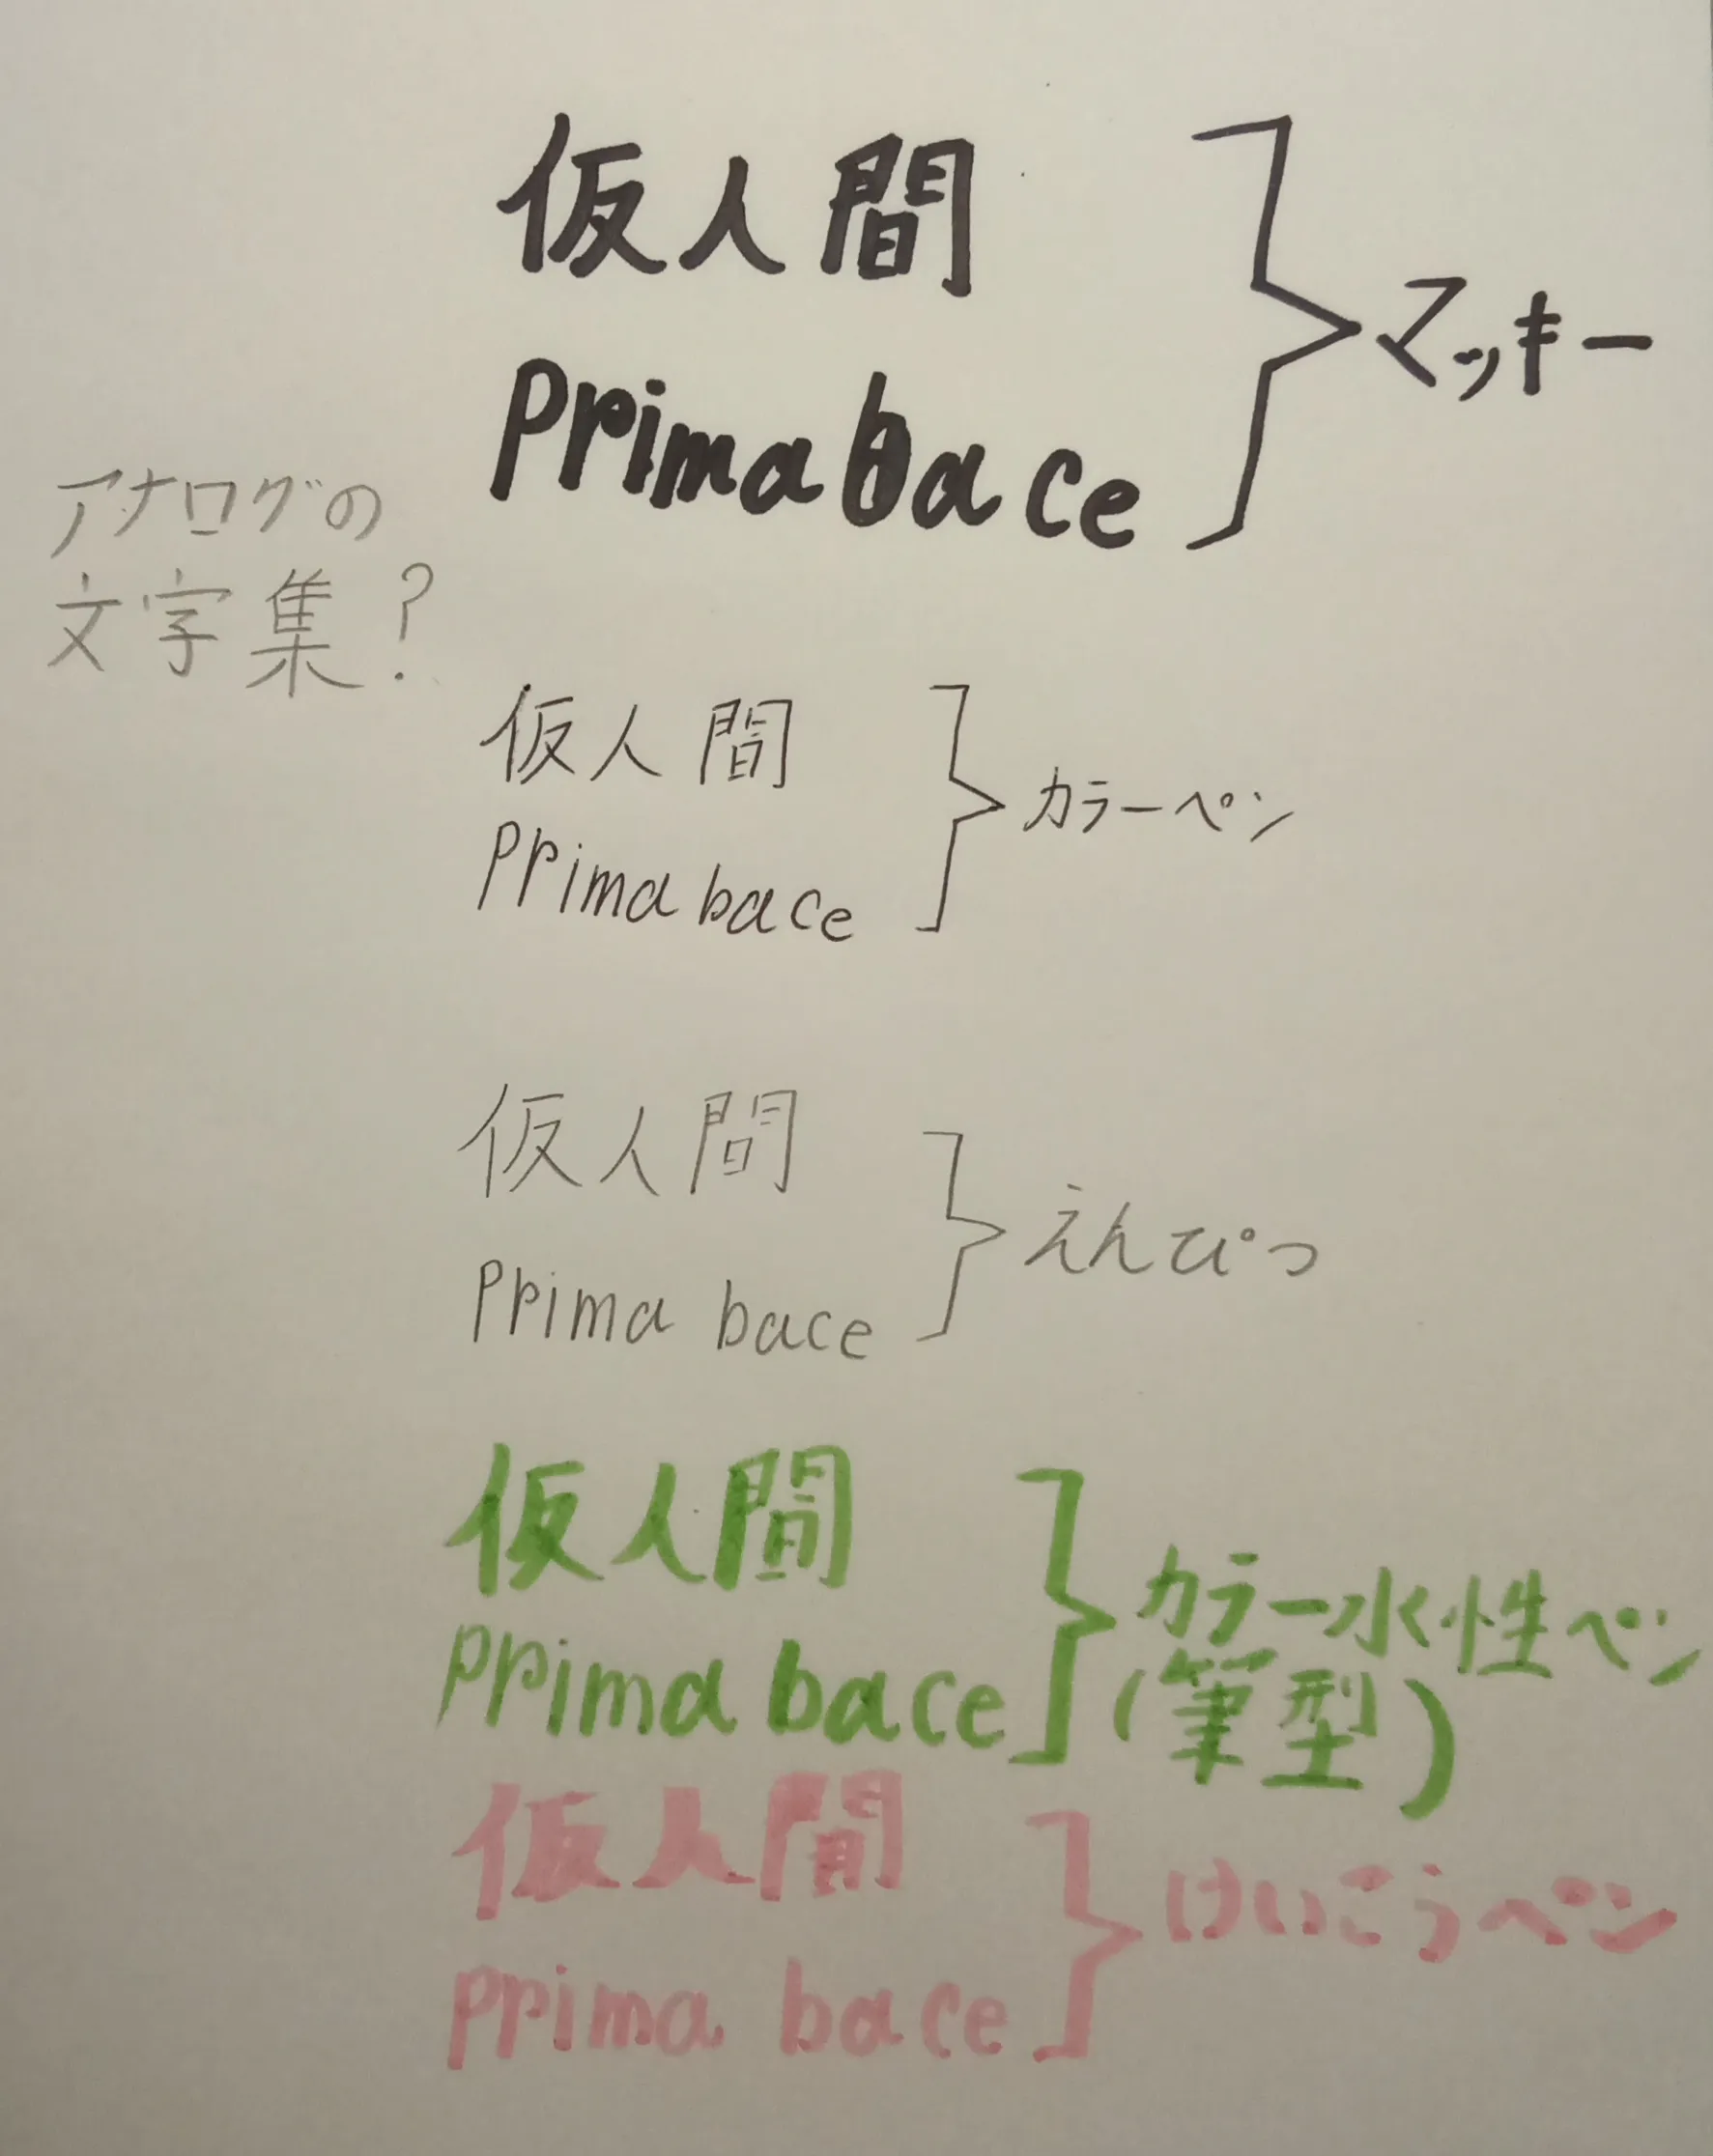 仮人間
Prima bace
マッキー
アナログの
文字集?
仮人間
Prima bace
カラーペン
仮人間
Prima bace
えんぴつ
仮人間
Prima bace
カラー水性ペン
(筆型)
仮人間
Prima bace
けいこうペン